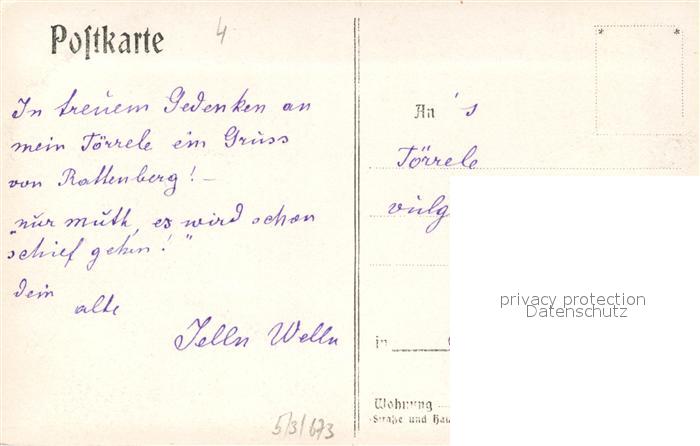 Postkarte
4
In treuem Gedenken an
mein Törrele ein Gruss
von Rattenberg! –
„nur muth, es wird schon
schief gehen!"
dein
alte
An 's
Törrele
vulg
privacy protection
Datenschutz
in
Wohnung
Straße und Hau
5/3/673